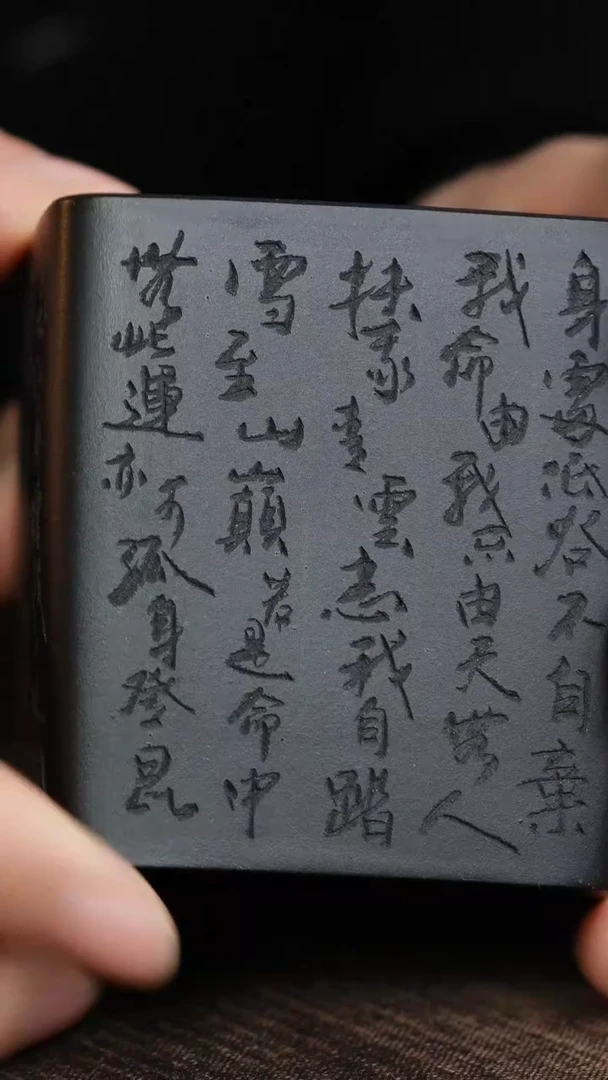 身處低谷不自棄
我命由我不由天無人
扶我青雲志我自踏
雪至山巔若是命中
無此運亦可孤身登昆